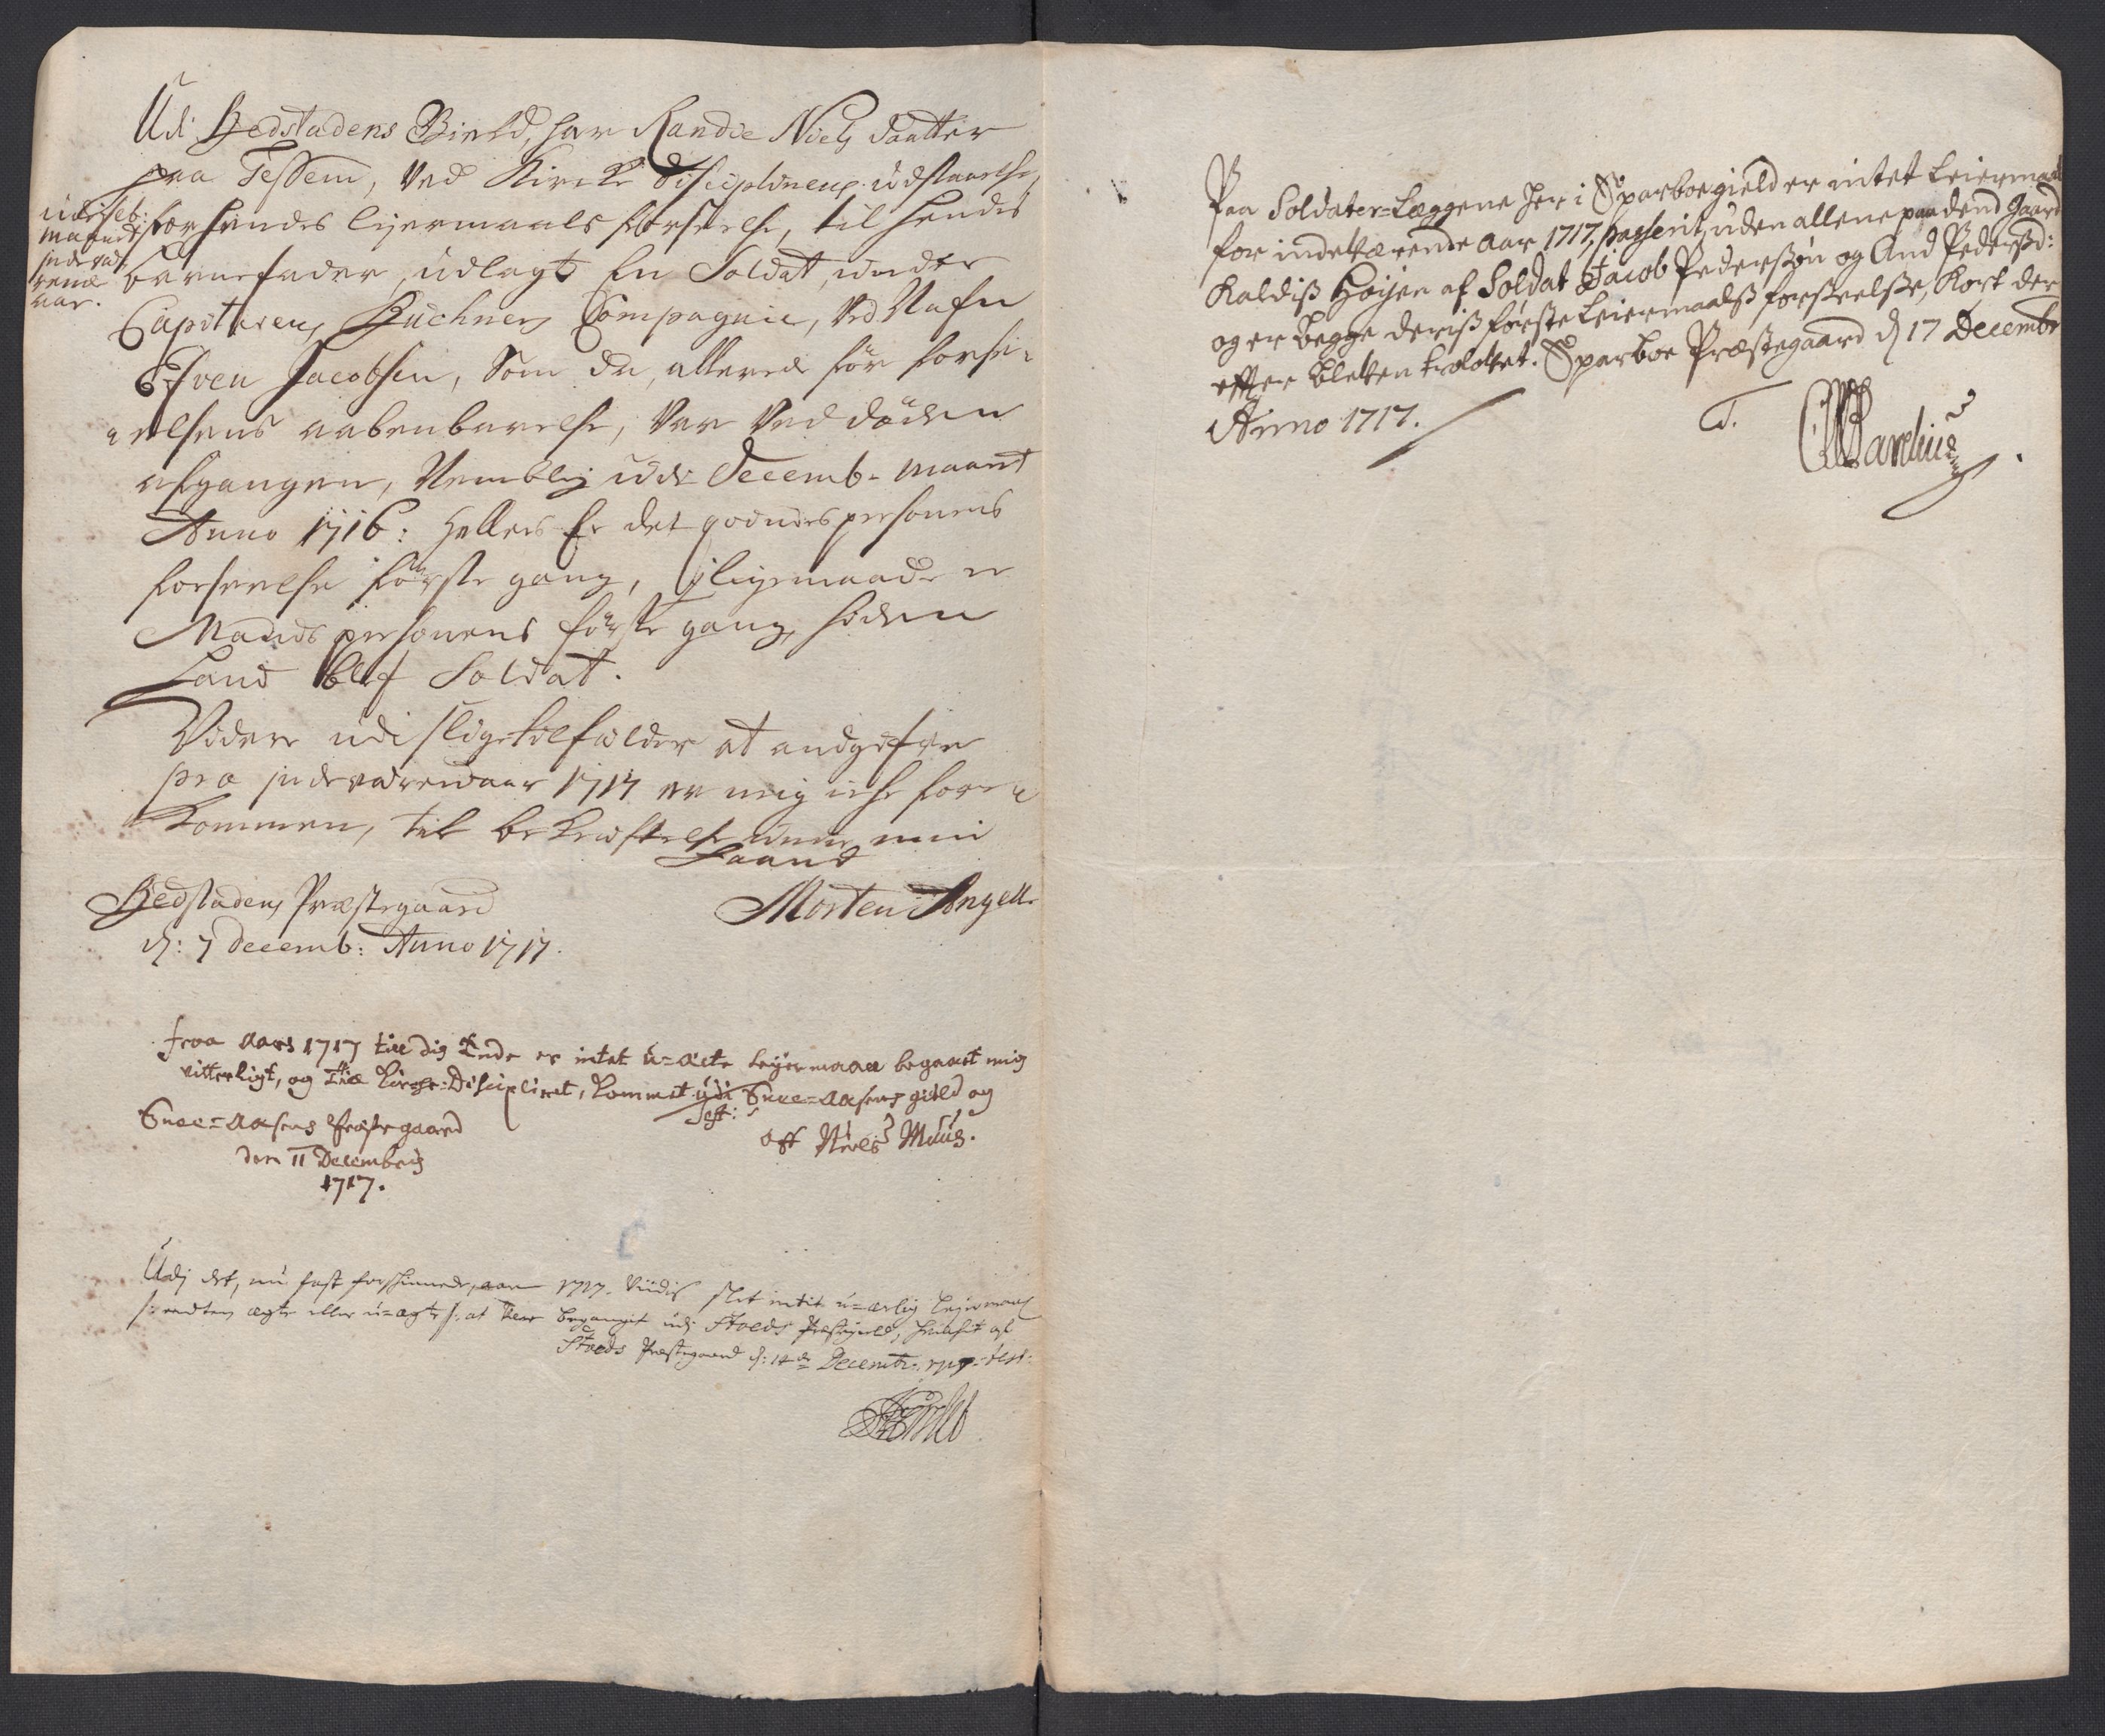 Udi Bedstadens Gield, har Randie Niels Daatter
paa Tessem, ved Kircke Disciplinens udstaaelse,
udi feb:
maaned
inde væ
rende
aar.
for hendes lejermaals forseelse, til hendis
barnefader, udlagt En Soldat, under
Capitaren, Buchners Compagnie, ved Nafn
Efven Jacobsen, Som da, allerede før forse-
elsens aabenbarelse, var ved døden
afgangen, Nemblig udi Decemb. maanet
Anno 1716: Hellers Er det qvindes personens
forseelse første gang, j ligemaade er
Mands personens første gang, siden
hand blef Soldat.
Videre udi slige tilfælder at andgifve
pro inde værende aar 1717 er mig iche fore-
kommen, til bekræftelse under min
Haand
Bedstadens Præstegaard
d: 7 Decemb: Anno 1717.
Morten Angell
fraa Aars 1717 till dis Ende er intet u-ækte Leyermaal begaaet mig
vitterligt, og till Kirche-Disciplinet, kommet udi Snee-aasens gield og
Snee-Aasens Præstegaard
den 11 Decembris
1717.
Off Niels Muus.
Udj det, nu fast forsvunnede, aar 1717. viidis slet intet u-ærlig Lejermaal
/: endten ægte eller u-ægte :/ at være begangit udj Stoeds Præstegield,
Stoeds Præstegaard d: 14de Decembr: 1717.
Paa Soldater-Læggene her i Sparboe gield er intet Leiermaal
for indeværende Aar 1717, passerit, uden allene paa dend Gaard
Kaldiß Høijen af Soldat Jacob Pederssøn og And Pedersd:
og er begge deriß første Leiermaalß forseelsse, Kort der
effter bleven trolovet. Sparboe Præstegaard d 17 Decembr
Anno 1717.
T.